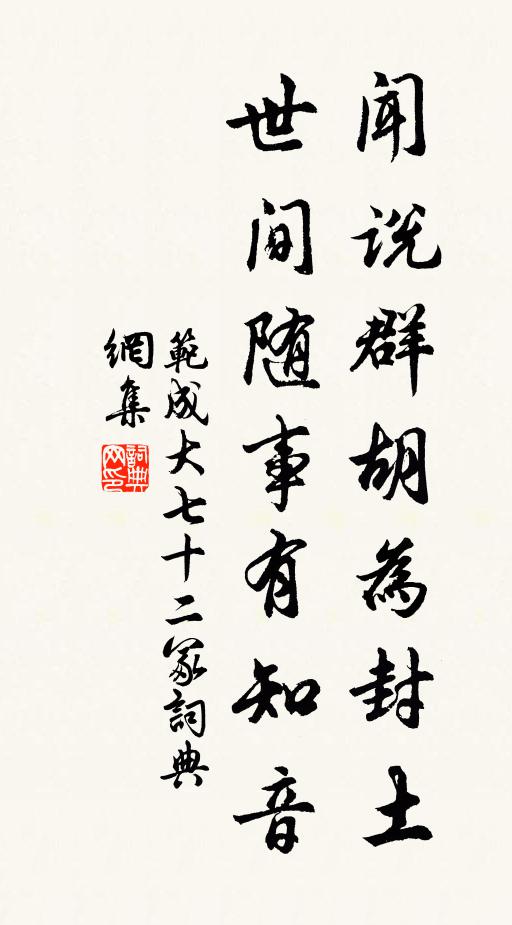 闻说群胡為封土
世间随事有知音
範成大七十二冢詞典
網集
詞典
网印